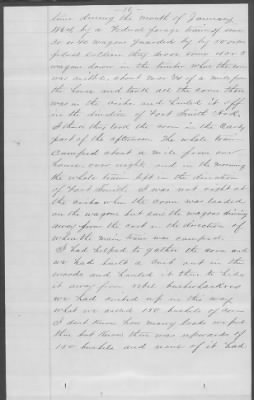 time during the month of January
1864 by a Federal forage train of some
30 or 40 wagons guarded by
federal soldiers. They drove some
wagons down in the timber where the corn
was cribbed about one 3/4 of a mile from
the house and took all the corn there
was in the cribs and hauled it off
in the direction of Fort Smith Ark.
I think they took the corn in the early
part of the afternoon. The whole train
camped about a mile from our
house over night, and in the morning
the whole train left in the direction
of Fort Smith. I was not right at
the cribs when the corn was loaded
on the wagons but saw the wagons driving
away from the crib in the direction of
where the main train was camped.
I had helped to gather the corn and
we had built a crib out in the
woods and hauled it there to hide
it away from rebel bushwhackers
we had cribbed up in this way
what we owned 150 bushels of corn
I dont know how many loads we put
there but know there was upwards of
150 bushels and none of it had